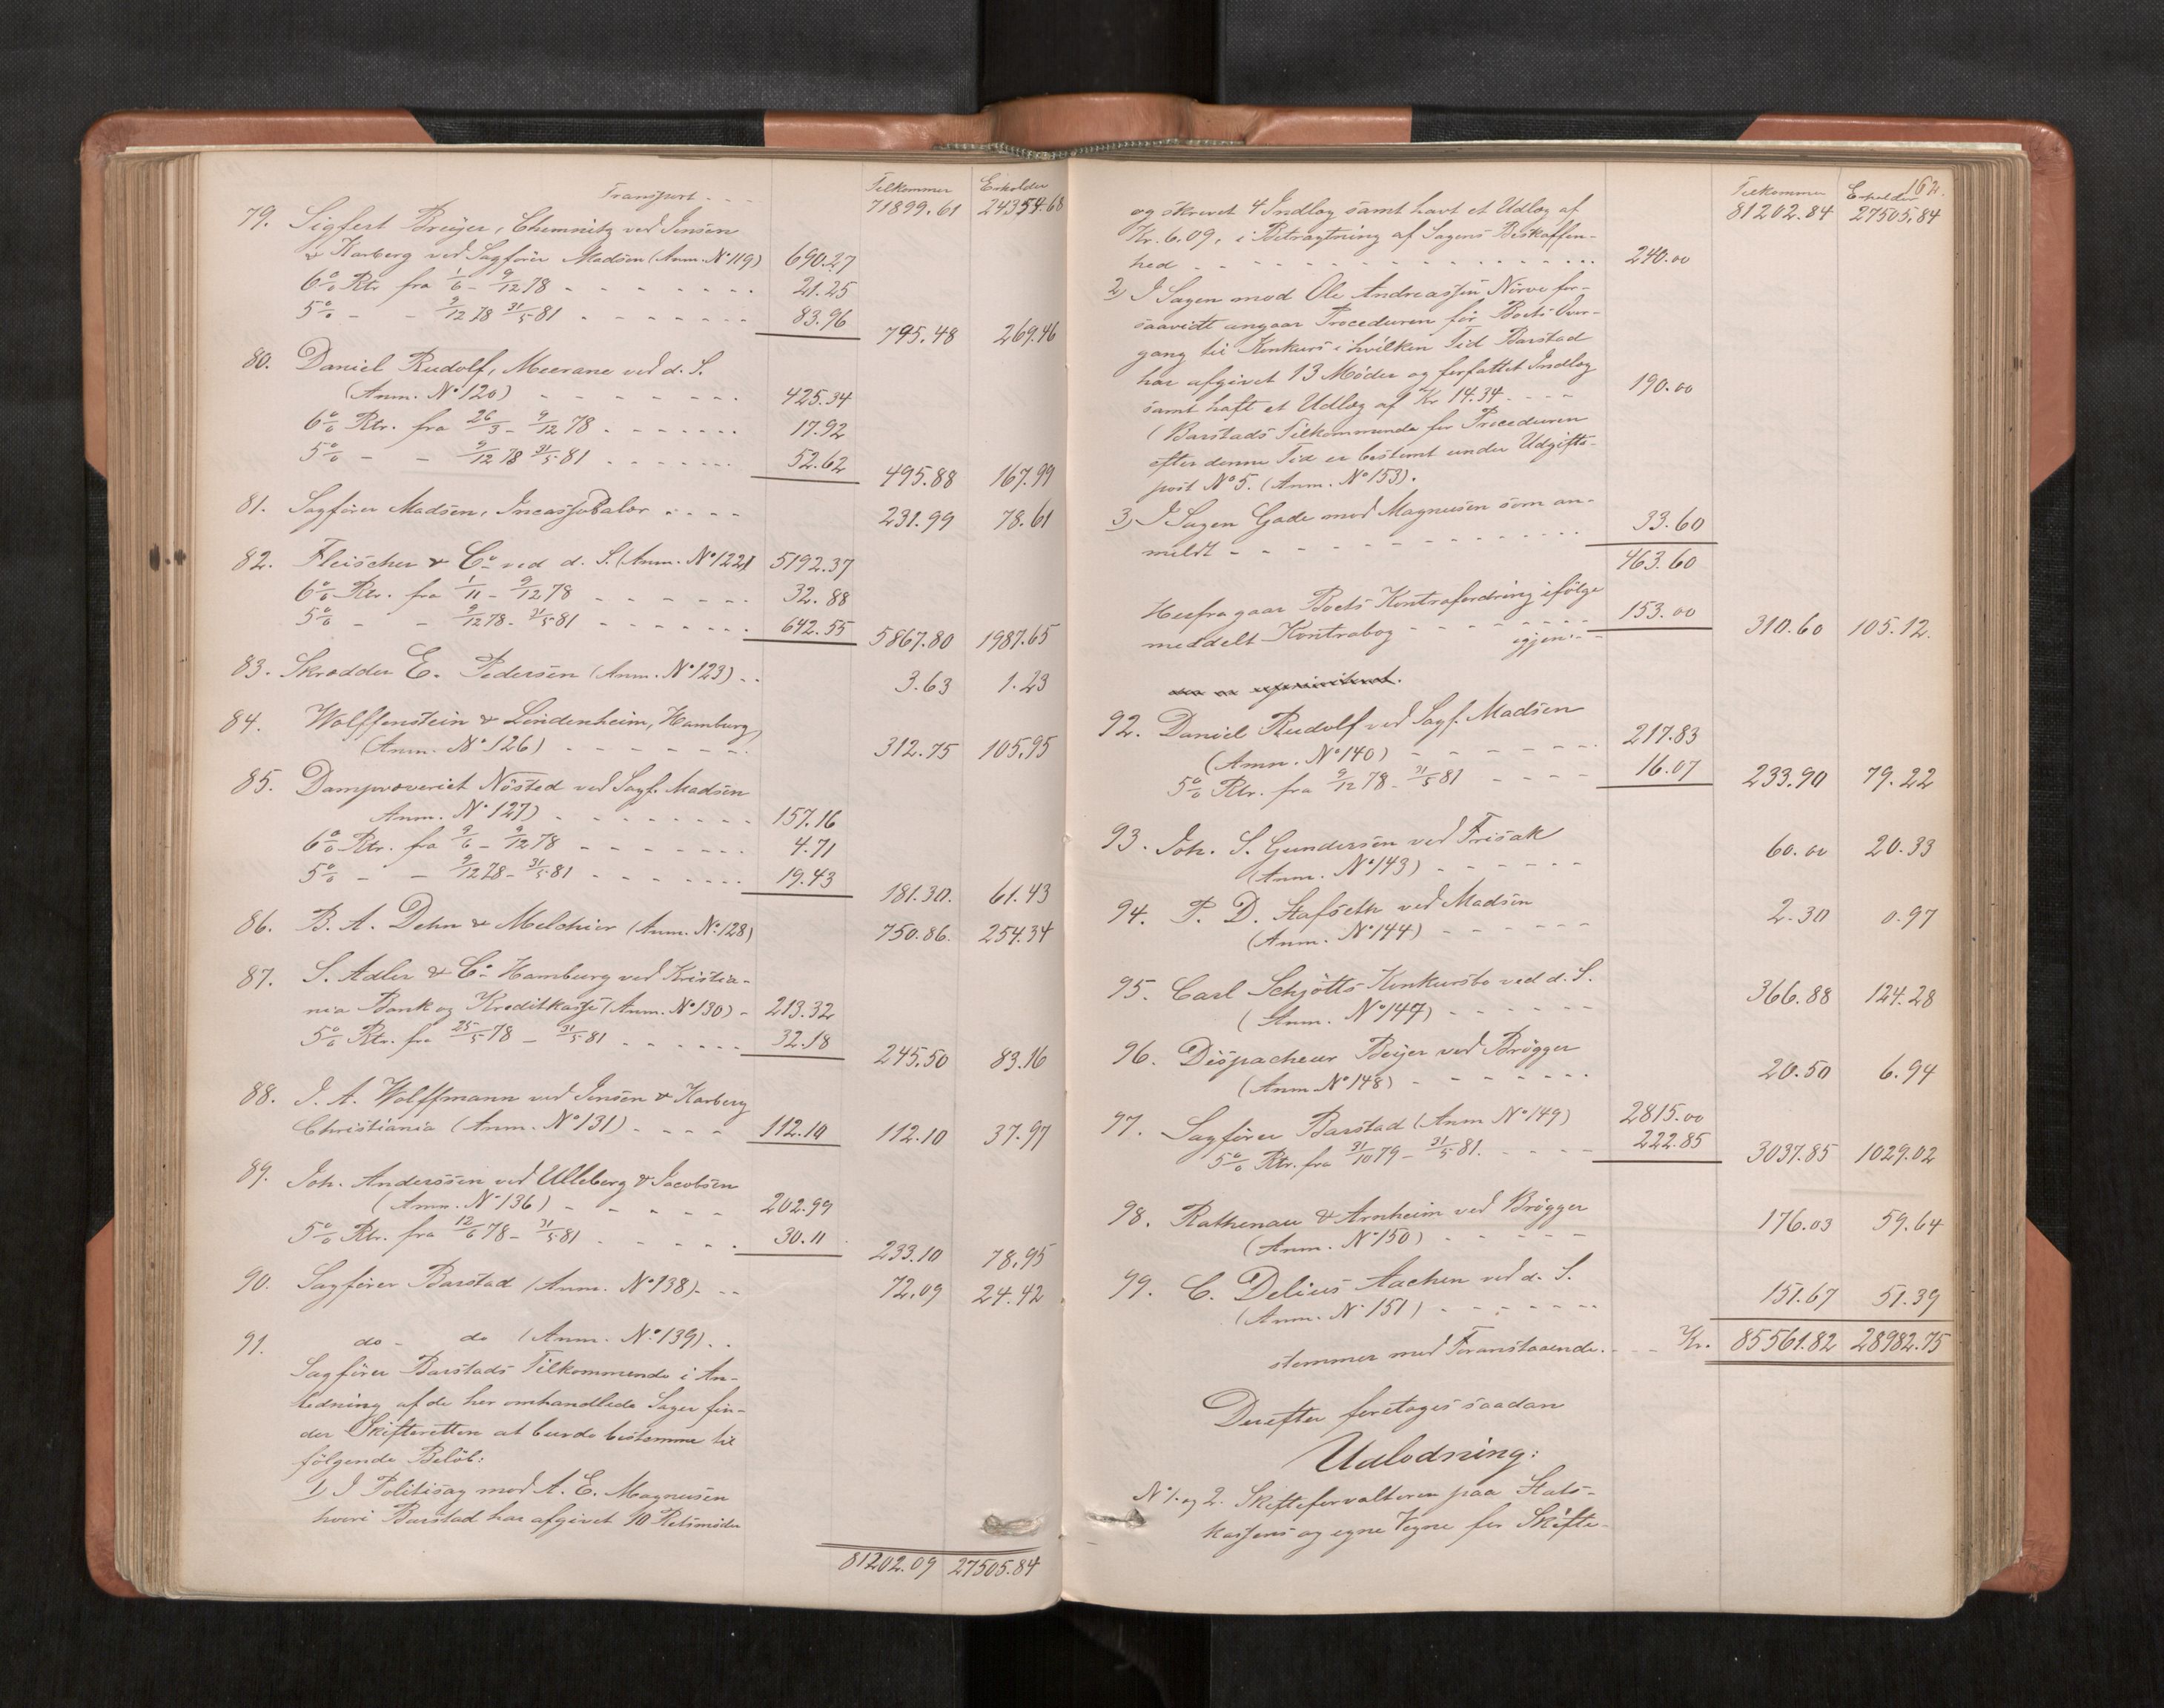 Tilkommer Erholder
Transport - - - 71899.61 24354.68
79. Sigfert Breyer, Chemnitz ved Jensen
& Karberg ved Sagfører Madsen (Anm. No 119) 690.27
6% Rtr fra 1/6 - 9/12 78 - - - - - - - 21.25
5% - - 9/12 78 31/5 81 - - - - - - - 83.96 795.48 269.46
80. Daniel Rudolf, Meerane ved d. S.
(Anm. No 120) - - - - - - - 425.34
6% Rtr. fra 26/3 - 9/12 78 - - - - - - - 17.92
5% - - 9/12 78 31/5 81 - - - - - - - 52.62 495.88 167.99
81. Sagfører Madsen, Incassosalær - - - - 231.99 78.61
82. Fleischer & Co ved d. S. (Anm. No 122) 5192.37
6% Rtr. fra 1/11 - 9/12 78 - - - - - - 32.88
5% - - 9/12 78 - 31/5 81 - - - - - - 642.55 5867.80 1987.65
83. Skrædder E. Pedersen (Anm. No 123) - - 3.63 1.23
84. Wolffenstein & Lindenheim, Hamburg,
(Anm. No 126) - - - - - - - 312.75 105.95
85. Dampvæveriet Nøsted ved Sagf. Madsen
Anm. No 127) - - - - - - - - 157.16
6% Rtr. fra 9/6 - 9/12 78 - - - - - - - 4.71
5% - - 9/12 78 - 31/5 81 - - - - - - - 19.43 181.30. 61.43
86. B. A. Dehn & Melchior (Anm. No 128) 750.86. 254.34
87. S. Adler & Co Hamburg ved Kristia-
nia Bank og Kreditkasse (Anm. No 130) - 213.32
5% Rtr. fra 25/5 78 - 31/5 81 - - - - - - 32.18 245.50 83.16
88. J. A. Wolffmann ved Jensen & Karberg
Christiania (Anm. No 131) - - - - 112.10 112.10 37.97
89. Joh. Anderssen ved Ulleberg & Jacobsen
(Anm. No 136) - - - - - 202.99
5% Rtr. fra 12/6 78 - 31/5 81 - - - - - 30.11 233.10 78.95
90. Sagfører Barstad (Anm. No 138) - - - 72.09 24.42
91. do - do (Anm. No 139) - -
Sagfører Barstads Tilkommende i An-
ledning af de her omhandlede Sager fin-
der Skifteretten at burde bestemme til
følgende Beløb:
1) I Politisag mod A. E. Magnusen
hvori Barstad har afgivet 10 Retsmøder
81202.09 27505.84
162.
Tilkommer Erholder
81202.84 27505.84
og skrevet 4 Indlæg samt havt et Udlæg af
Kr. 6,09, i Betragtning af Sagens Beskaffen-
hed - - - - - - - - - - - - 240.00
2) I Sagen mod Ole Andreassen Nørve for-
saavidt angaar Proceduren før Boets Over-
gang til Konkurs i hvilken Tid Barstad
har afgivet 13 Møder og forfattet Indlæg
samt haft et Udlæg af Kr 14.34 - - - - 190.00
(Barstads Tilkommende for Proceduren
efter denne Tid er bestemt under Udgifts-
post No 5. (Anm. No 153).
3) I Sagen Gade mod Magnusen som an-
meldt - - - - - - - - - - - - 33.60
463.60
Herfra gaar Boets Kontrafordring ifølge
meddelt Kontrabog - - - - - - - 153.00
igjen - - - 310.60 105.12.
92. Daniel Rudolf ved Sagf. Madsen
(Anm. No 140) - - - - - - - 217.83
5% Rtr. fra 9/12 78 - 31/5 81 - - - - 16.07 233.90 79.22
93. Joh. S. Gundersen ved Frisak
(Anm. No 143) - - - - - - 60.00 20.33
94. P. D. Stafseth ved Madsen
(Anm. No 144) - - - - - - 2.30 0.97
95. Carl Schjøtts Konkursbo ved d. S.
(Anm. No 147) - - - - - - 366.88 124.28
96. Dispacheur Beyer ved Brøgger
(Anm No 148) - - - - - - - 20.50 6.94
97. Sagfører Barstad (Anm No 149) 2815.00
5% Rtr. fra 31/10 79 - 31/5 81. - - - - 222.85 3037.85 1029.02
98. Rathenau & Arnheim ved Brøgger
(Anm. No 150) - - - - - - 176.03 59.64
99. C. Delius Aachen ved d. S.
(Anm. No 151) - - - - - - - 151.67 51.39
stemmer med Foranstaaende. - - Kr. 85561.82 28982.75
Derefter foretoges saadan
Udlodning:
No 1. og 2. Skifteforvalteren paa Stats-
kassens og egne Vegne for Skifte-